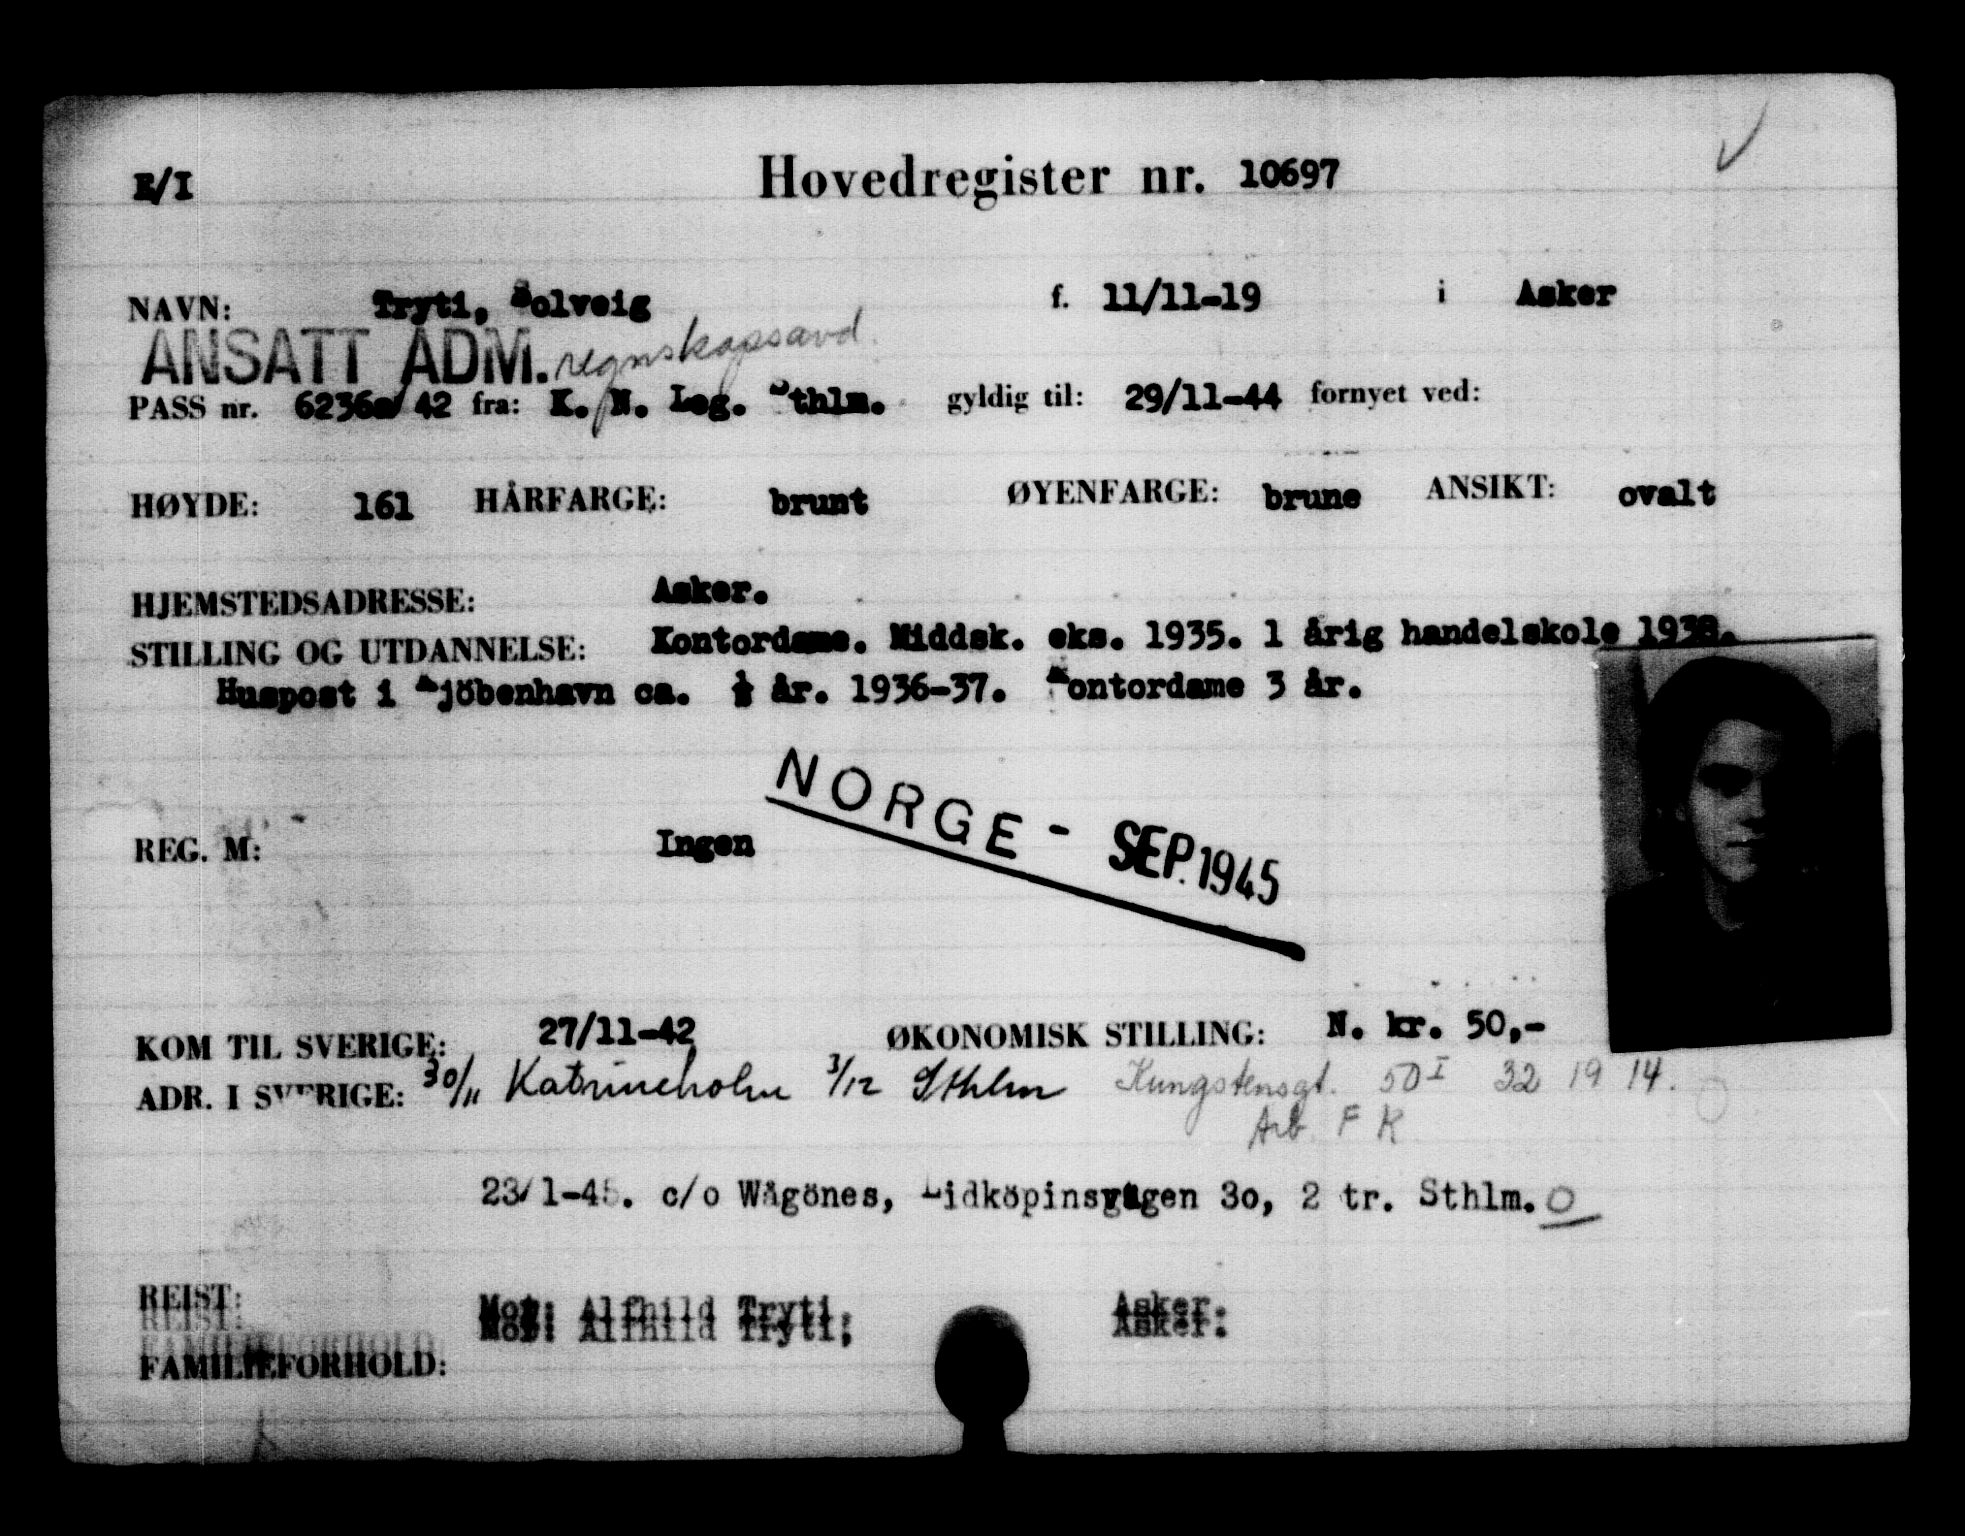 E/I Hovedregister nr. 10697
NAVN: Tryti, Solveig f. 11/11-19 i Asker
ANSATT ADM. regnskapsavd.
PASS nr. 6236a/42 fra: K. N. Leg. Sthlm. gyldig til: 29/11-44 fornyet ved:
HØYDE: 161 HÅRFARGE: brunt ØYENFARGE: brune ANSIKT: ovalt
HJEMSTEDSADRESSE: Asker.
STILLING OG UTDANNELSE: Kontordame. Middsk. eks. 1935. 1 årig handelskole 1938.
Huspost i Kjöbenhavn ca. ½ år. 1936-37. Kontordame 3 år.
NORGE - SEP. 1945
REG. M: Ingen
KOM TIL SVERIGE: 27/11-42 ØKONOMISK STILLING: N. kr. 50,-
ADR. I SVERIGE: 30/11 Katrineholm 3/12 Sthlm Kungstensgt. 50 I 32 19 14.
Arb. F K
23/1-45. c/o Wågönes, Lidköpinsvägen 3o, 2 tr. Sthlm.
REIST:
Mor: Alfhild Tryti, Asker.
FAMILIEFORHOLD: